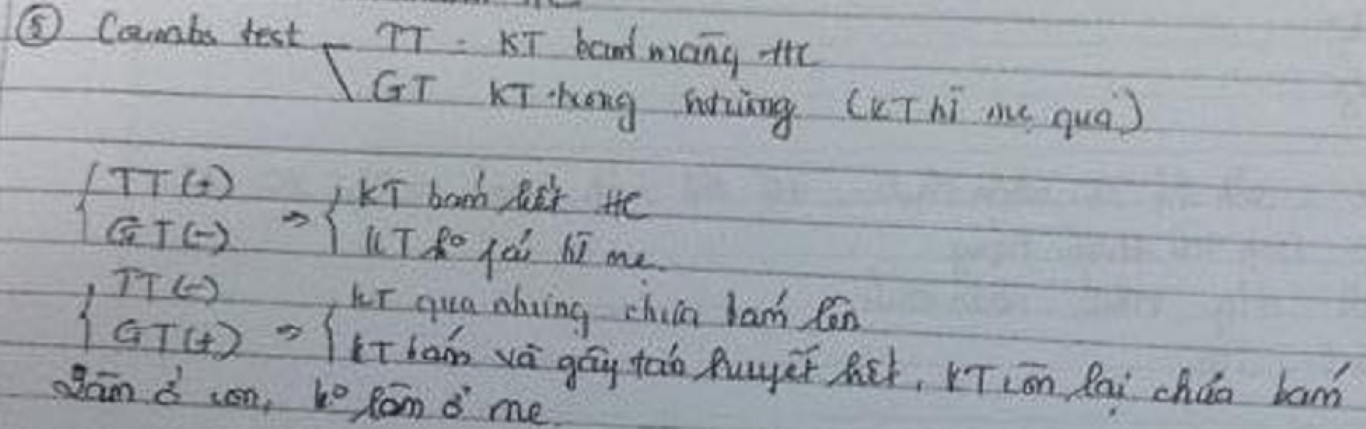 ⑤ Coombs test - TT : KT bám màng HC
\ GT KT trong huyết tương (KT từ mẹ qua)
{ TT (+) GT (-) => { KT bám hết HC
KT ko phải từ mẹ.
{ TT (-) GT (+) => { KT qua nhưng chưa bám lên
KT bám và gây tán huyết hết, KT còn lại chưa bám
Làm ở con, ko làm ở mẹ